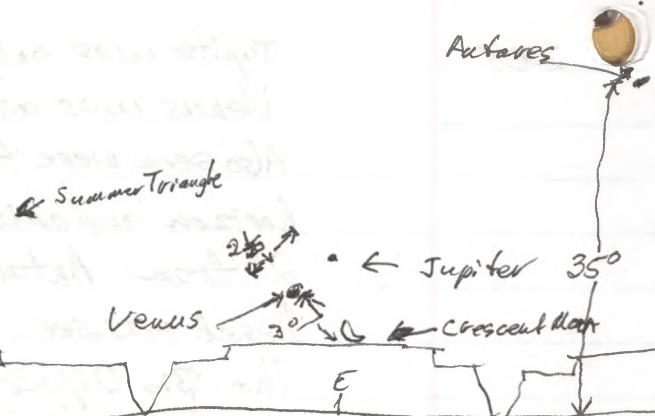 Antares
Summer Triangle
Jupiter
35°
Venus
Crescent Moon
E